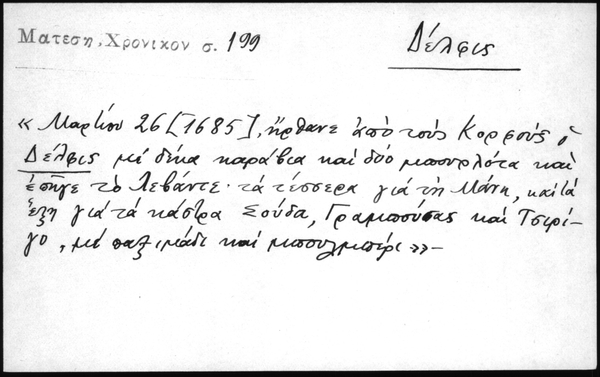 Ματεση, Χρονικον σ. 199
Δέλφις
« Μαρτίου 26 [1685], ἤρθανε ἀπὸ τοὺς Κορφοὺς ὁ
Δέλφις μὲ δέκα καράβια καὶ δύο μπουρλότα καὶ
ἐπῆγε τὸ Λεβάντε· τὰ τέσσερα γιὰ τὴ Μάνη, καὶ τὰ
ἕξη γιὰ τὰ κάστρα Σούδα, Γραμπούσας καὶ Τσιρί-
γο, μὲ παξιμάδι καὶ